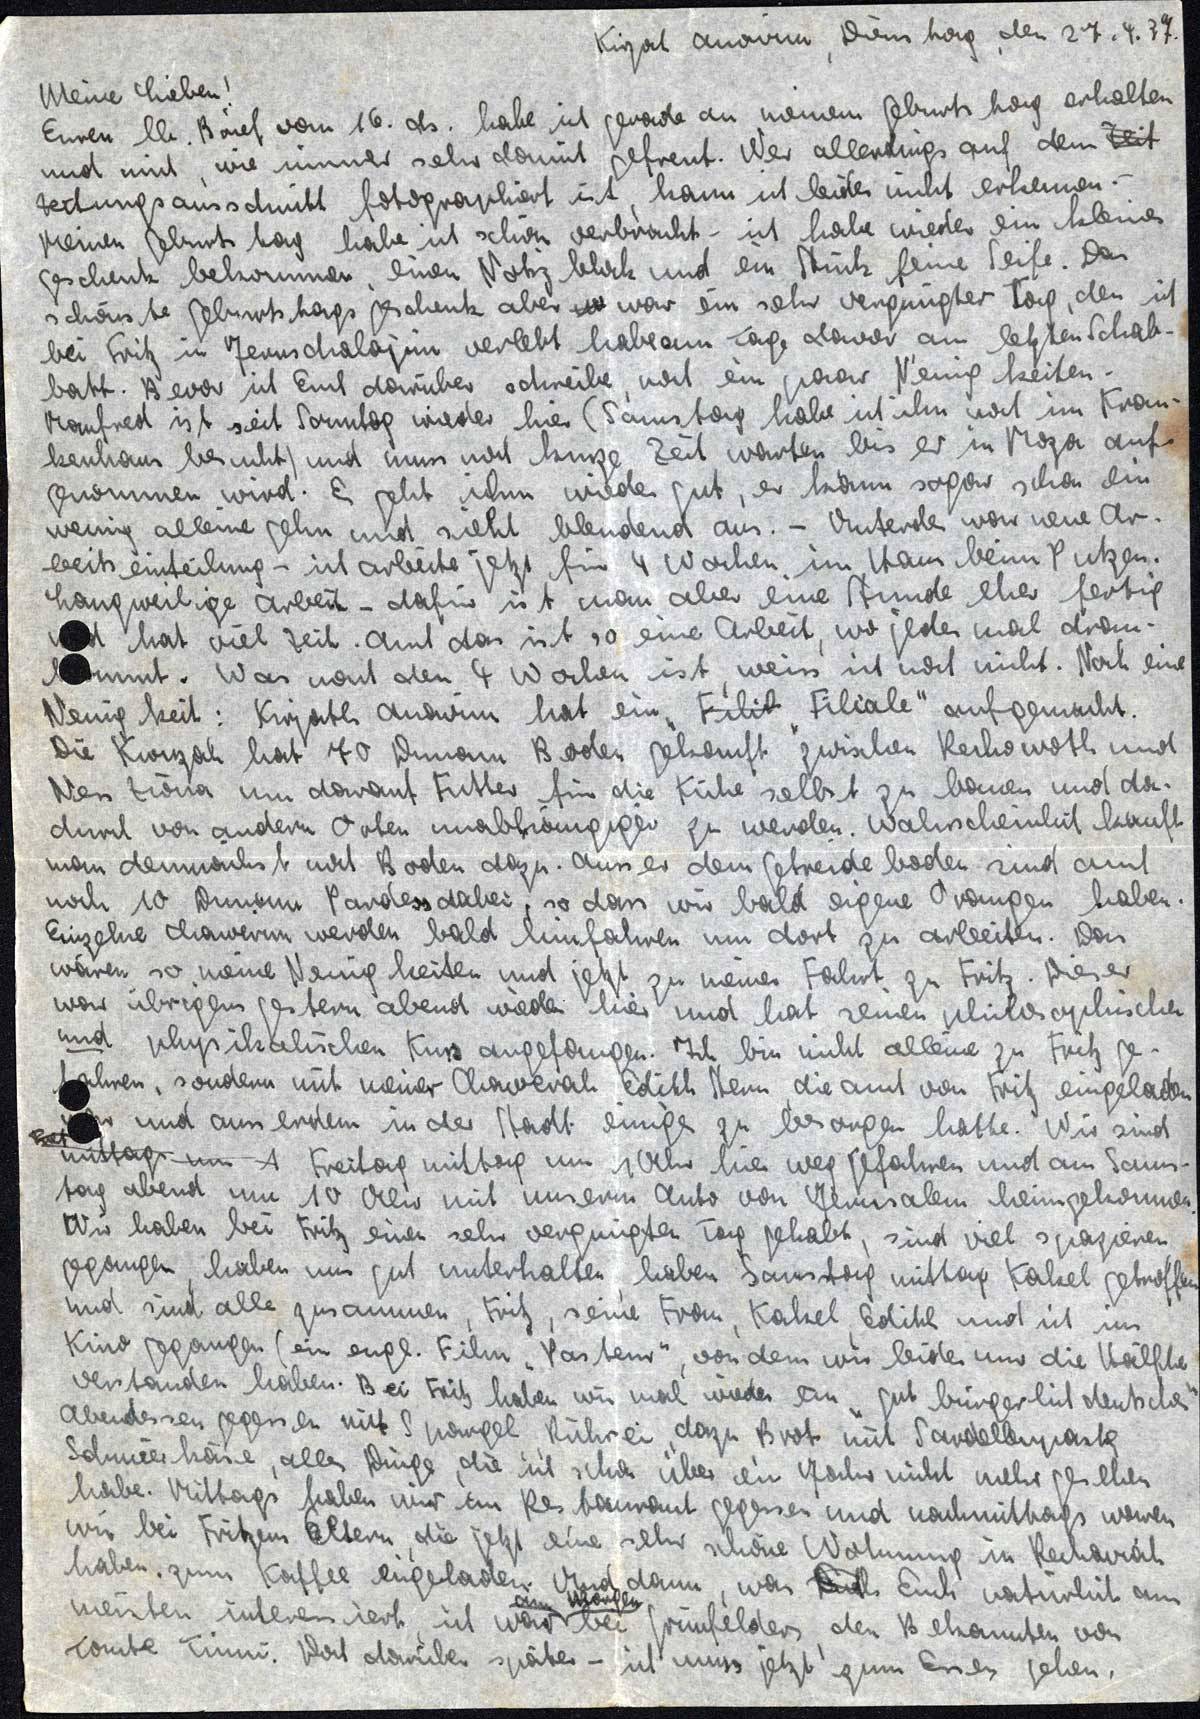 Kirjat Anavim, Dienstag, den 27.4.37.
Meine Lieben!
Euren lb. Brief vom 16. ds. habe ich gerade an meinem Geburtstag erhalten
und mich, wie immer sehr damit gefreut. Wer allerdings auf dem Zeit
zeitungsausschnitt fotographiert ist, kann ich leider nicht erkennen. -
Meinen Geburtstag habe ich schön verbracht - ich habe wieder ein kleines
Geschenk bekommen, einen Notizblock und ein Stück feine Seife. Das
schönste Geburtstagsgeschenk aber war ein sehr vergnügter Tag, den ich
bei Fritz in Jeruschalajim verlebt habe am Tage davor am letzten Schab-
batt. Bevor ich Euch darüber schreibe, noch ein paar Neuigkeiten.
Manfred ist seit Sonntag wieder hier (Samstag habe ich ihn noch im Kran-
kenhaus besucht) und muss noch kurze Zeit warten bis er in Moza auf-
genommen wird. Es geht ihm wieder gut, er kann sogar schon ein
wenig alleine gehn und sieht blendend aus. - Unterdes war neue Ar-
beitseinteilung - ich arbeite jetzt für 4 Wochen im Haus beim Putzen.
Langweilige Arbeit - dafür ist man aber eine Stunde eher fertig
und hat viel Zeit. Auch das ist so eine Arbeit, wo jeder mal dran-
kommt. Was nach den 4 Wochen ist, weiss ich noch nicht. Noch eine
Neuigkeit: Kirjath Anavim hat ein „Filit „Filiale" aufgemacht.
Die Kwuzah hat 70 Dunam Boden gekauft zwischen Rechowoth und
Ness Ziona um darauf Futter für die Kühe selbst zu bauen und da-
durch von andern Orten unabhängiger zu werden. Wahrscheinlich kauft
man demnächst noch Boden dazu. Ausser dem Getreideboden sind auch
noch 10 Dunam Pardess dabei, so dass wir bald eigene Orangen haben.
Einzelne Chawerim werden bald hinfahren um dort zu arbeiten. Das
wären so meine Neuigkeiten und jetzt zu meiner Fahrt zu Fritz. Dieser
war übrigens gestern abend wieder hier und hat seinen philosophischen
und physikalischen Kurs angefangen. Ich bin nicht alleine zu Fritz ge-
fahren, sondern mit meiner Chawerah Edith Stern, die auch von Fritz eingeladen
war und ausserdem in der Stadt einiges zu besorgen hatte. Wir sind
mittags um 1 Freitag mittag um 1 Uhr hier weggefahren und am Sams-
tag abend um 10 Uhr mit unserm Auto von Jerusalem heimgekommen.
Wir haben bei Fritz einen sehr vergnügten Tag gehabt, sind viel spazieren
gegangen, haben uns gut unterhalten, haben Samstag mittag Kakel getroffen
und sind alle zusammen, Fritz, seine Frau, Kakel, Edith und ich ins
Kino gegangen (ein engl. Film „Pasteur", von dem wir leider nur die Hälfte
verstanden haben. Bei Fritz haben wir mal wieder ein „gut bürgerlich deutsches"
Abendessen gegessen mit Spargel Rührei, dazu Brot mit Sardellenpaste
Schmierkäse, alles Dinge, die ich schon über ein Jahr nicht mehr gesehen
habe. Mittags haben wir im Restaurant gegessen und nachmittags waren
wir bei Fritzens Eltern, die jetzt eine sehr schöne Wohnung in Rechaviah
haben, zum Kaffee eingeladen. Und dann, was Euch natürlich am
meisten interessiert, ich war am Morgen bei Grünfelders, den Bekannten von
Tante Timi. Doch darüber später - ich muss jetzt zum Essen gehen.